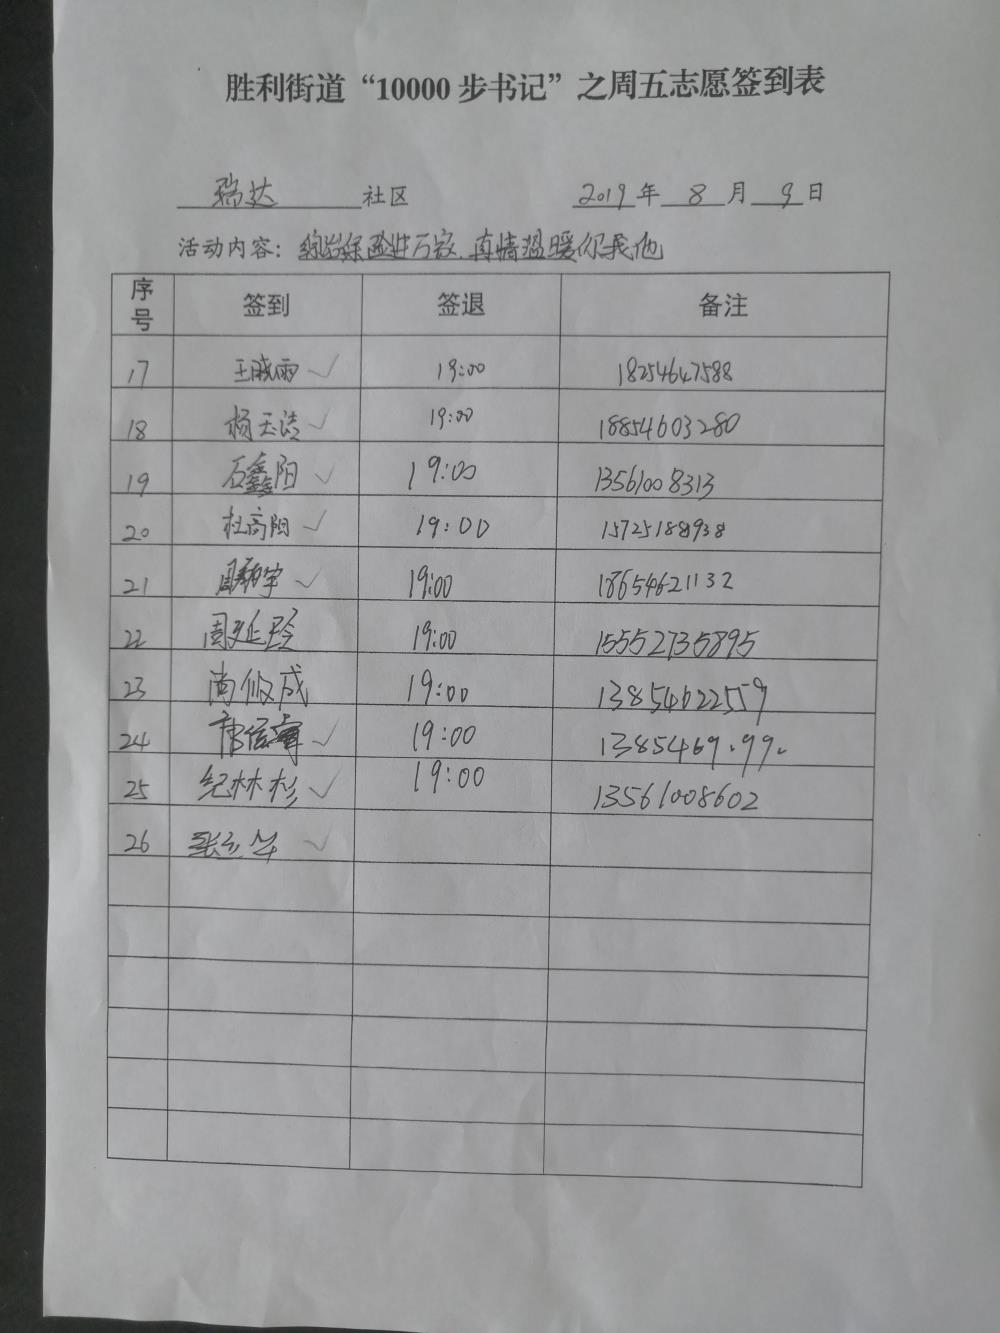 胜利街道“10000步书记”之周五志愿签到表
瑞达 社区 2019年 8 月 9 日
活动内容：综治保险进万家.真情温暖你我他
序号 签到 签退 备注
17 王晓雨 ✓ 19:00 18254647588
18 杨玉洁 ✓ 19:00 18854603280
19 石鑫阳 ✓ 19:00 13561008313
20 杜高阳 ✓ 19:00 15725188938
21 ✓ 19:00 18654621132
22 周延玲 19:00 15552735895
23 尚俊成 19:00 13854622559
24 ✓ 19:00
25 纪林杉 ✓ 19:00 13561008602
26 ✓